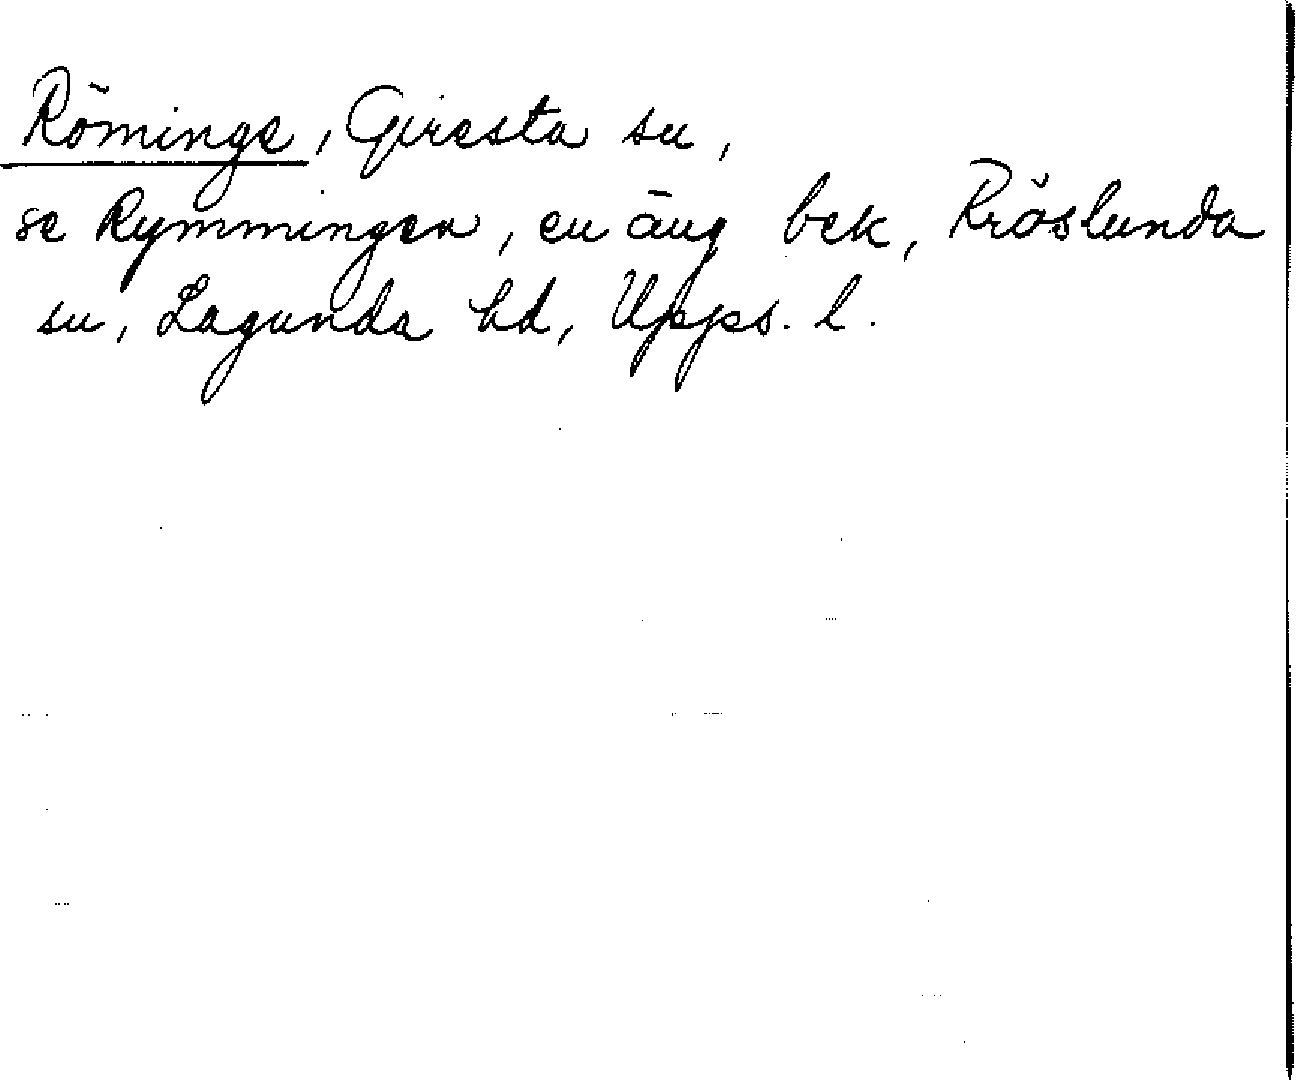 Röminge, Giresta sn,
se Rymmingen, en äng bek, Fröslunda
sn, Lagunda hd, Upps. l.